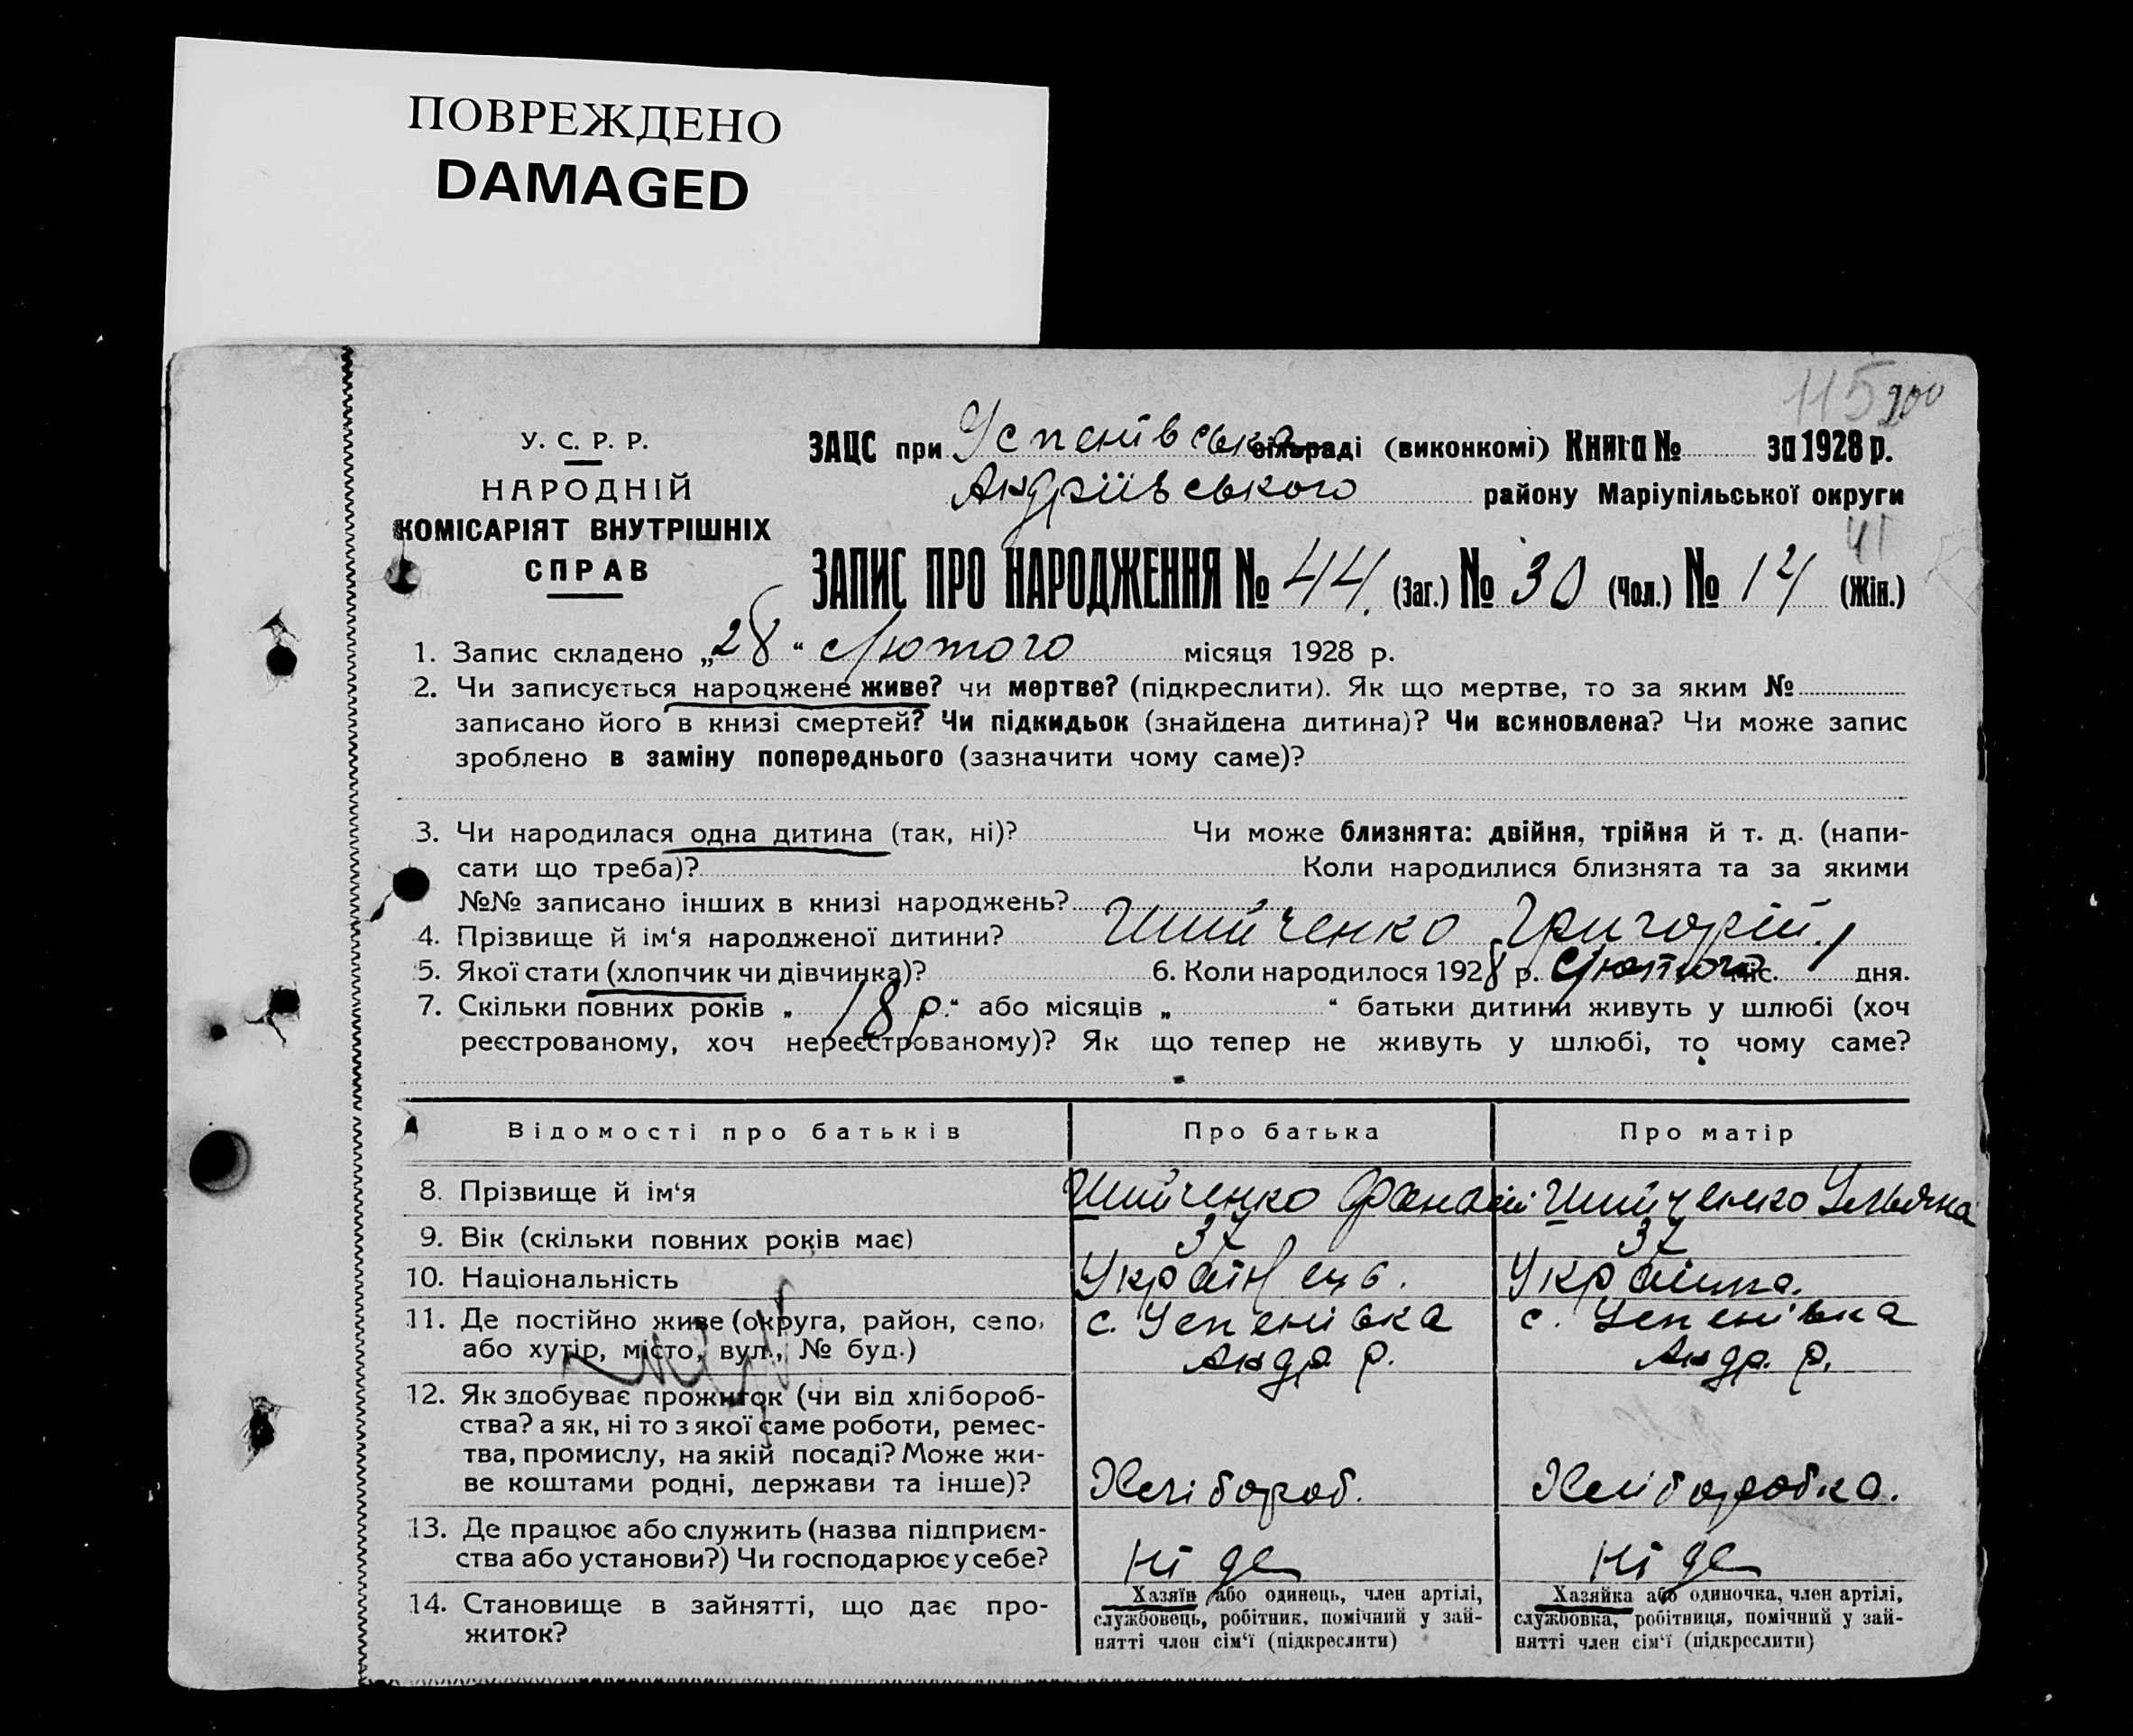 ПОВРЕЖДЕНО
DAMAGED
115 200
У. С. Р. Р.
НАРОДНІЙ
КОМІСАРІЯТ ВНУТРІШНІХ
СПРАВ
ЗАЦС при Успенівська сільраді (виконкомі) Книга № за 1928 р.
Андріївського району Маріупільської округи
41
ЗАПИС ПРО НАРОДЖЕННЯ № 44. (Заг.) № 30 (Чол.) № 14 (Жін.)
1. Запис складено „28“ Лютого місяця 1928 р.
2. Чи записується народжене живе? чи мертве? (підкреслити). Як що мертве, то за яким №
записано його в книзі смертей? Чи підкидьок (знайдена дитина)? Чи всиновлена? Чи може запис
зроблено в заміну попереднього (зазначити чому саме)?
3. Чи народилася одна дитина (так, ні)? Чи може близнята: двійня, трійня й т. д. (напи-
сати що треба)? Коли народилися близнята та за якими
№№ записано інших в книзі народжень?
4. Прізвище й ім‘я народженої дитини? Шийченко Григорій
5. Якої стати (хлопчик чи дівчинка)? 6. Коли народилося 1928 р. Лютого міс. 1 дня.
7. Скільки повних років „18 р.“ або місяців „ “ батьки дитини живуть у шлюбі (хоч
реєстрованому, хоч нереєстрованому)? Як що тепер не живуть у шлюбі, то чому саме?
Відомості про батьків Про батька Про матір
8. Прізвище й ім‘я Шийченко Фанасій Шийченко Ульяна
9. Вік (скільки повних років має) 37 37
10. Національність Українець. Українка.
11. Де постійно живе (округа, район, село, с. Успенівка с. Успенівка
або хутір, місто, вул., № буд.) Андр. р. Андр. р.
12. Як здобуває прожиток (чи від хлібороб-
ства? а як, ні то з якої саме роботи, ремес-
тва, промислу, на якій посаді? Може жи-
ве коштами родні, держави та інше)? Хлібороб. Хліборобка.
13. Де працює або служить (назва підприєм-
ства або установи?) Чи господарює у себе? Ні де Ні де
14. Становище в зайнятті, що дає про-
житок?
Хазяїн або одинець, член артілі,
службовець, робітник, помічний у зай-
нятті член сім‘ї (підкреслити)
Хазяйка або одиночка, член артілі,
службовка, робітниця, помічний у зай-
нятті член сім‘ї (підкреслити)